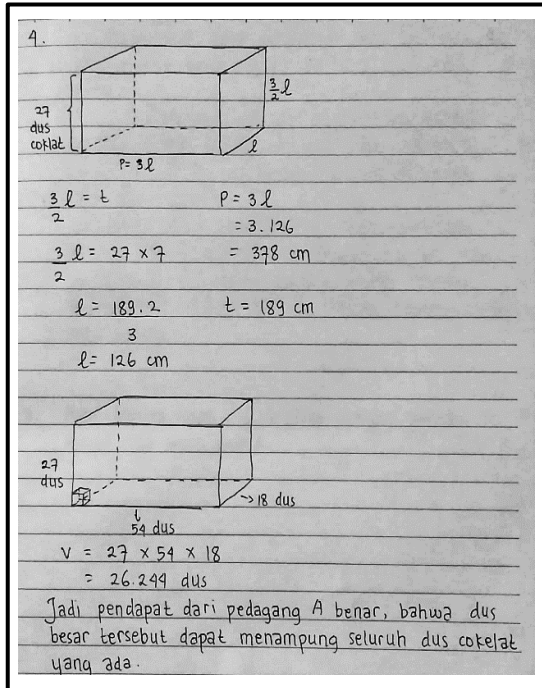 4.
27
dus
coklat
3/2 l
l
P = 3l
3/2 l = t
P = 3l
= 3.126
3/2 l = 27 × 7
= 378 cm
l = 189.2/3
t = 189 cm
l = 126 cm
27
dus
18 dus
54 dus
V = 27 × 54 × 18
= 26.244 dus
Jadi pendapat dari pedagang A benar, bahwa dus
besar tersebut dapat menampung seluruh dus cokelat
yang ada.